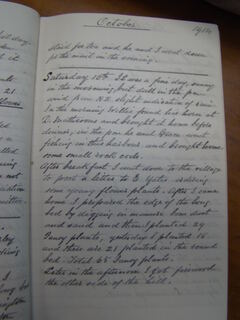 October 1914
staid for tea and he and I went down
for the mail in the evening.
Saturday 10th It was a fine day, sunny
in the morning, but dull in the p.m.
wind from N.E. slight indication of rain.
In the morning Arthur found his horse at
D. Matthesons and brought it home before
dinner; in the p.m. he and went
fishing in this harbour, and brought home
some small rock cods.
After breakfast I went down to the village
to post a letter to G. Yates ordering
some spring flower plants. After I came
home I prepared the edge of the long
bed by digging in manure bone dust
and sand and then I planted 29
Pansy plants, yesterday I planted 15
and there are 21 planted in the round
bed. Total 65 Pansy plants.
Later in the afternoon I got forward
the other side of the bed.